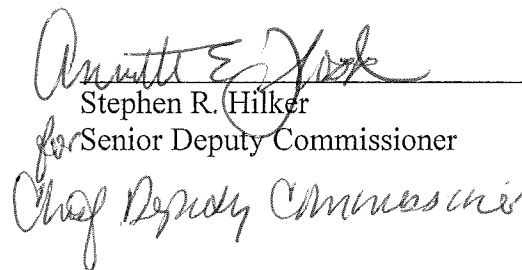 Annette E. Hook
Stephen R. Hilker
for Senior Deputy Commissioner
Chief Deputy Commissioner